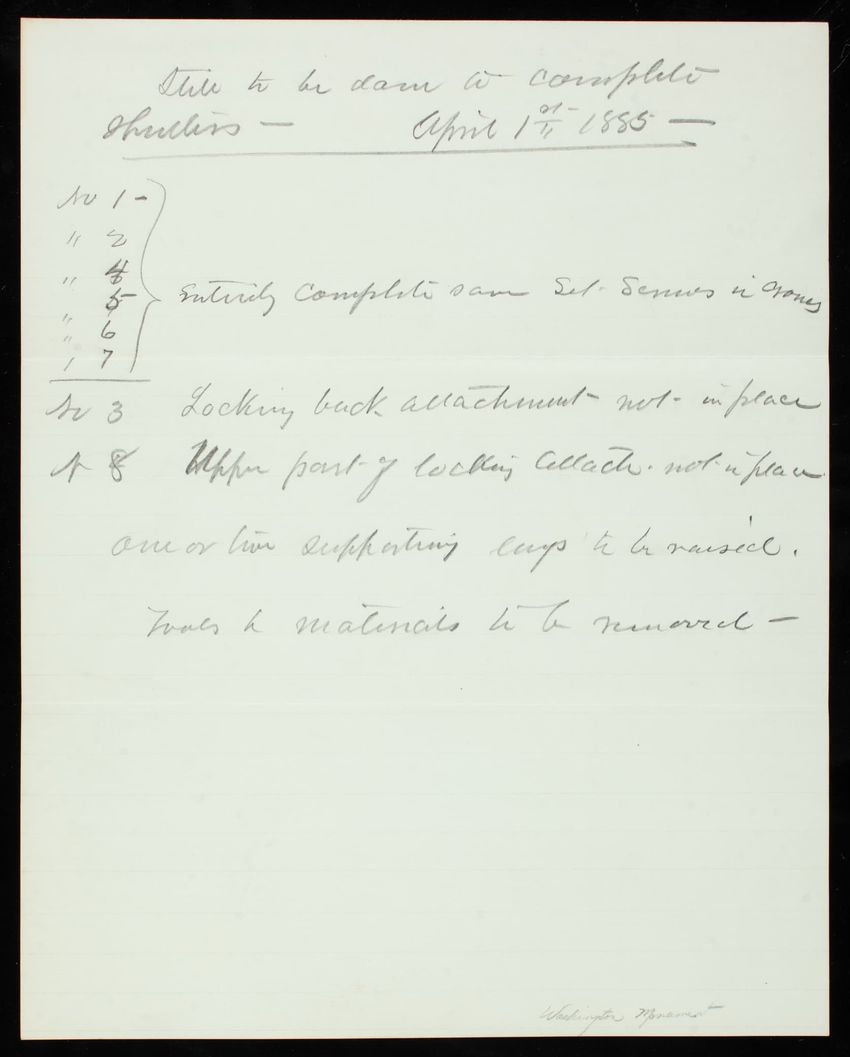 Still to be done to complete
Shutters — April 1st 1885 —
No 1 -
" 2
" 4
" 5
" 6
" 7
Entirely complete save Set Screws in
No 3 Locking back attachment not in place
N 8 Upper part of locking attach. not in place
one or two supporting lugs to be raised.
Tools & materials to be removed —
Washington Monument